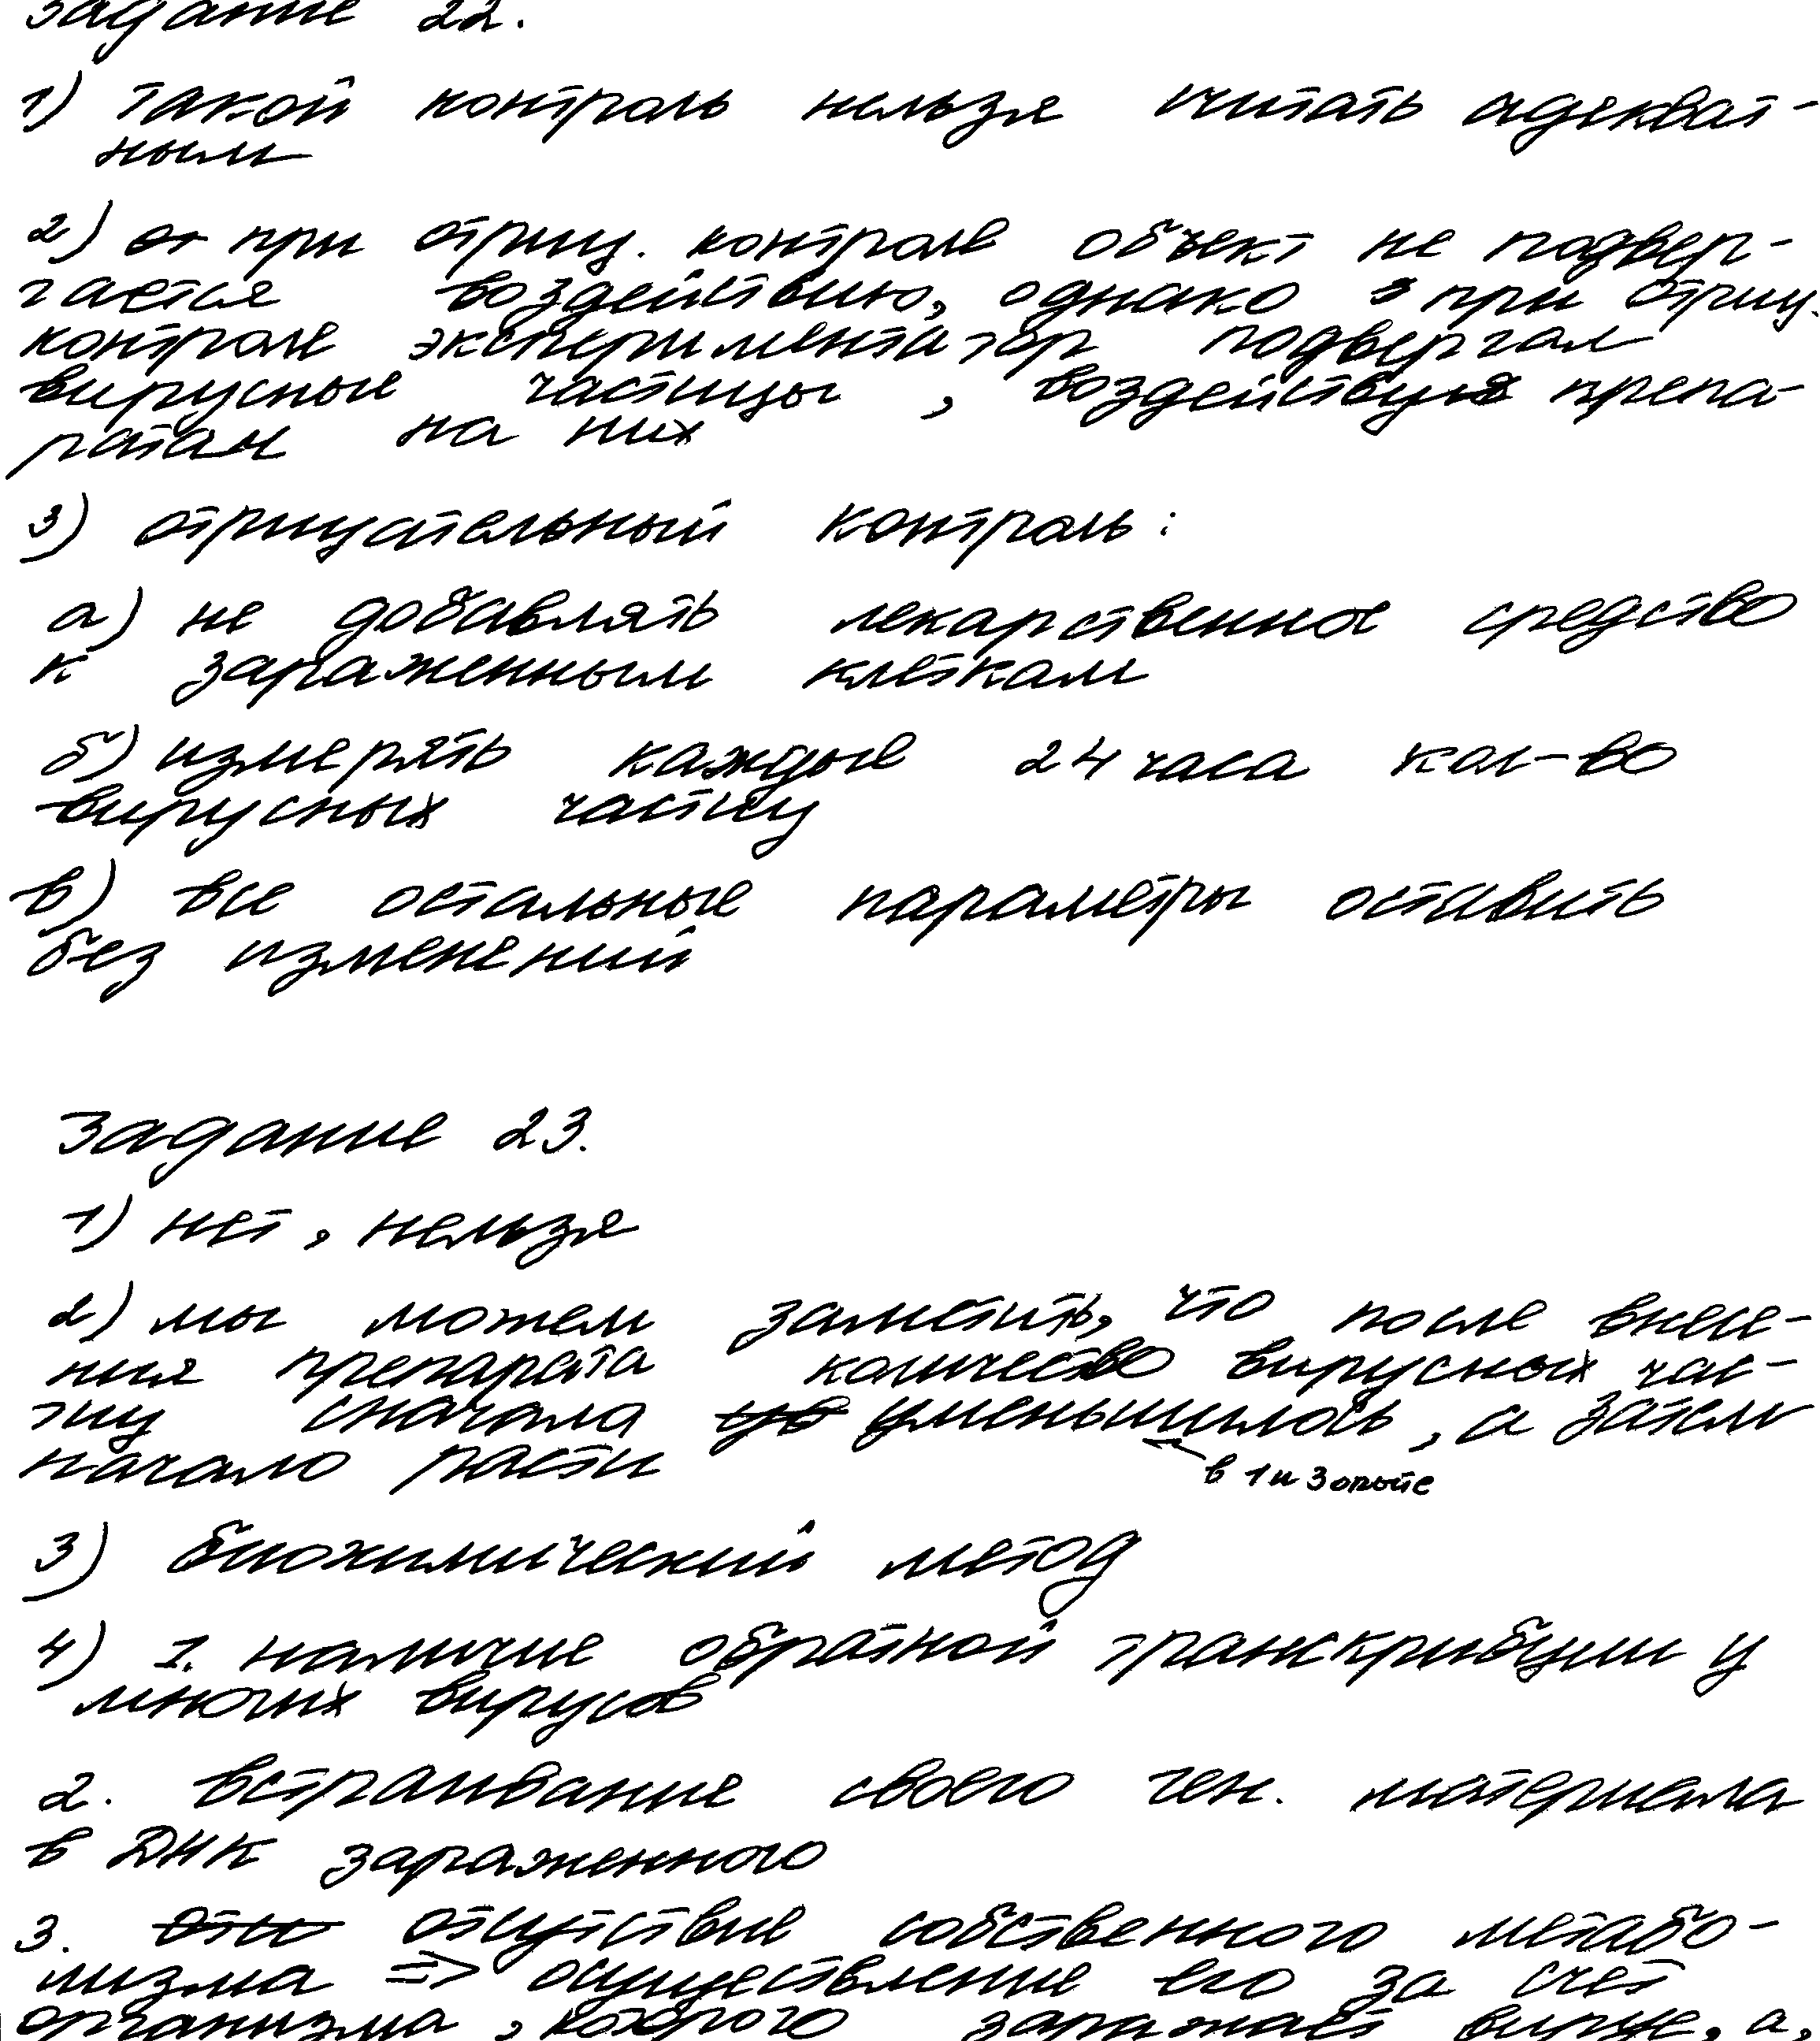 Задание 22.
1) такой контроль нельзя считать адекват-
ным
2) от при отриц. контроле объект не подвер-
гается воздействию, однако з при отриц.
контроле экспериментатор подвергал
вирусные частицы, воздействуя препа-
ратам на них
3) отрицательный контроль:
а) не добавлять лекарственное средство
к зараженным клеткам
б) измерять каждые 24 часа кол-во
вирусных частиц
в) все остальные параметры оставить
без изменений
Задание 23.
1) нет, нельзя
2) мы можем заметить, что после внесе-
ния препарата количество вирусных час-
тиц сначала ув уменьшилось, а затем
начало расти
в 1 и 3 опыте
3) биохимический метод
4) 1. наличие обратной транскрибции у
многих вирусов
2. встраивание своего ген. материала
в ДНК зараженного
3. отс отсутствие собственного метабо-
лизма => осуществление его за счет
организма, которого заражает вирус, а.